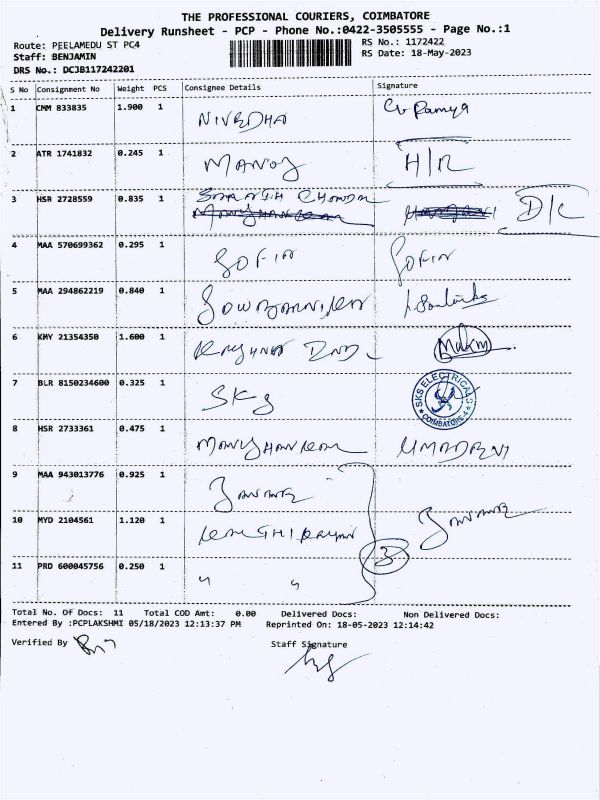 THE PROFESSIONAL COURIERS, COIMBATORE
Delivery Runsheet - PCP - Phone No.:0422-3505555 - Page No.:1
Route: PEELAMEDU ST PC4
RS No.: 1172422
Staff: BENJAMIN
RS Date: 18-May-2023
DRS No.: DCJB117242201
S No Consignment No Weight PCS Consignee Details Signature
1 CMM 833835 1.900 1 NIVEDHA Ramya
2 ATR 1741832 0.245 1 MANOJ H/R
3 HSR 2728559 0.835 1 D/L
4 MAA 570699362 0.295 1 SOFIA SOFIA
5 MAA 294862219 0.840 1 SOWBARNIKA
6 KMY 21354350 1.600 1
7 BLR 8150234600 0.325 1 SKS SKS ELECTRICALS COIMBATORE-4
8 HSR 2733361 0.475 1 UMADEVI
9 MAA 943013776 0.925 1
10 MYD 2104561 1.120 1
3
11 PRD 600045756 0.250 1 " "
Total No. Of Docs: 11 Total COD Amt: 0.00 Delivered Docs: Non Delivered Docs:
Entered By :PCPLAKSHMI 05/18/2023 12:13:37 PM Reprinted On: 18-05-2023 12:14:42
Verified By
Staff Signature